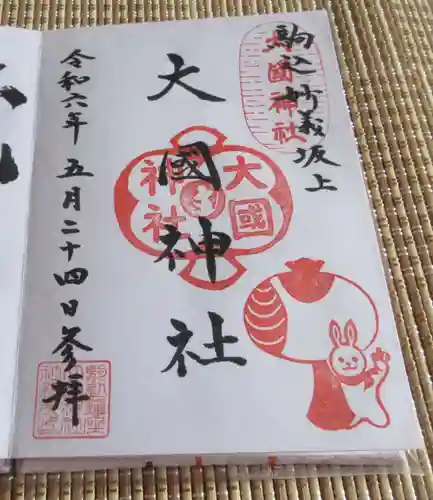 駒込妙義坂上
大國神社
大國神社
大國
神社
令和六年五月二十四日参拝